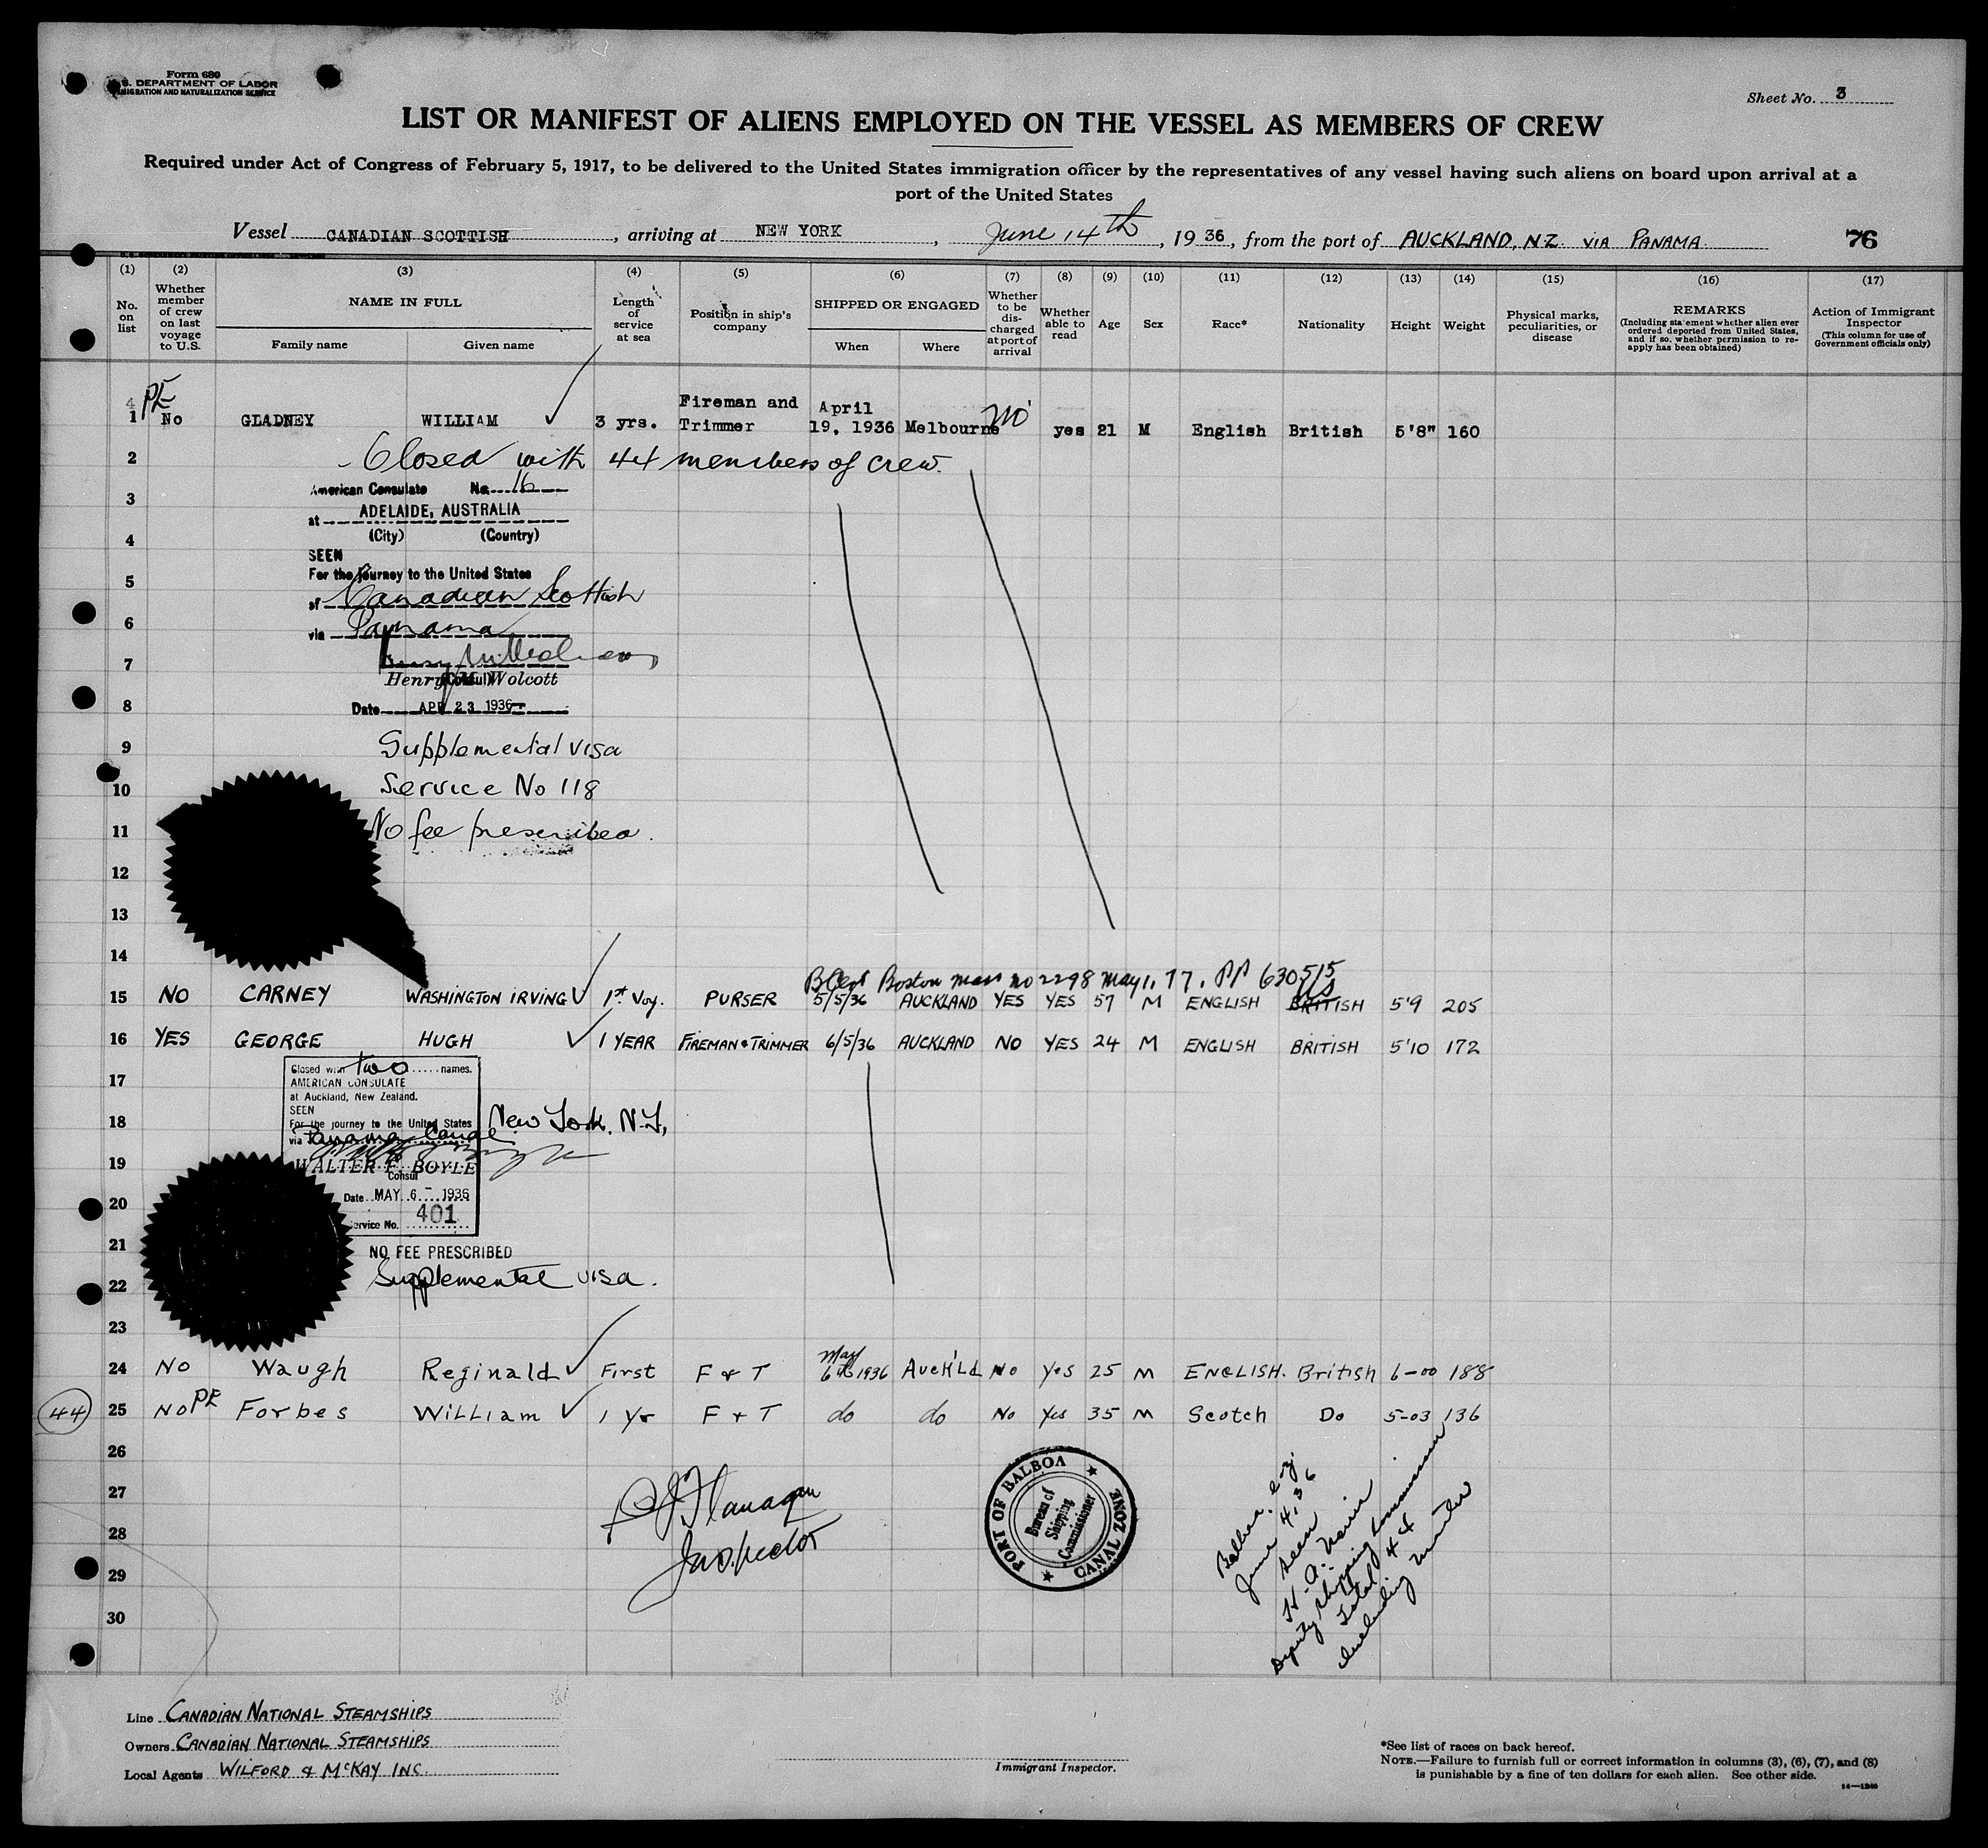 Form 680
U. S. DEPARTMENT OF LABOR
IMMIGRATION AND NATURALIZATION SERVICE
Sheet No. 3
LIST OR MANIFEST OF ALIENS EMPLOYED ON THE VESSEL AS MEMBERS OF CREW
Required under Act of Congress of February 5, 1917, to be delivered to the United States immigration officer by the representatives of any vessel having such aliens on board upon arrival at a
port of the United States
Vessel CANADIAN SCOTTISH, arriving at NEW YORK, June 14th, 1936, from the port of AUCKLAND, N.Z. VIA PANAMA. 76
(1) (2) (3) (4) (5) (6) (7) (8) (9) (10) (11) (12) (13) (14) (15) (16) (17)
No. on list
Whether member of crew on last voyage to U.S.
NAME IN FULL
Family name
Given name
Length of service at sea
Position in ship's company
SHIPPED OR ENGAGED
When
Where
Whether to be discharged at port of arrival
Whether able to read
Age
Sex
Race*
Nationality
Height
Weight
Physical marks, peculiarities, or disease
REMARKS
(Including statement whether alien ever ordered deported from United States, and if so, whether permission to reapply has been obtained)
Action of Immigrant Inspector
(This column for use of Government officials only)
4 PE
1 No GLADNEY WILLIAM 3 yrs. Fireman and Trimmer April 19, 1936 Melbourne No yes 21 M English British 5'8" 160
2 Closed with 44 members of crew.
American Consulate No. 16
3
at ADELAIDE, AUSTRALIA
4 (City) (Country)
SEEN
5 For the journey to the United States
of Canadian Scottish
6 via Panama
7
Henry M. Wolcott
(Consul)
8 Date APR 23 1936
9 Supplemental visa
10 Service No 118
11 No fee prescribed.
12
13
14
B Cert Boston Mass no 2298 May 1, 17. PP 630515
15 NO CARNEY WASHINGTON IRVING 1st Voy. PURSER 5/5/36 AUCKLAND YES YES 57 M ENGLISH BRITISH US 5'9 205
16 YES GEORGE HUGH 1 YEAR FIREMAN & TRIMMER 6/5/36 AUCKLAND NO YES 24 M ENGLISH BRITISH 5'10 172
Closed with two names.
17 AMERICAN CONSULATE
at Auckland, New Zealand.
SEEN
18 For the journey to the United States New York, N.Y,
via Panama Canal
19 WALTER F. BOYLE
Consul
20 Date MAY 6 - 1936
Service No. 401
21 NO FEE PRESCRIBED
22 Supplemental visa.
23
24 NO Waugh Reginald First F & T May 6th 1936 Auck'Ld No Yes 25 M ENGLISH. British 6-00 188
44 25 NO PE Forbes William 1 Yr F + T do do No Yes 35 M Scotch Do 5-03 136
26
27
28
29
30
P J Flanagan
Inspector
PORT OF BALBOA
CANAL ZONE
Bureau of Shipping Commissioner
Balboa, C.Z.
June 4, 36
Seen
Deputy Shipping Commissioner
Total 44
Including Master
Line CANADIAN NATIONAL STEAMSHIPS
Owners CANADIAN NATIONAL STEAMSHIPS
Local Agents WILFORD & McKAY INC.
Immigrant Inspector.
*See list of races on back hereof.
NOTE.—Failure to furnish full or correct information in columns (3), (6), (7), and (8)
is punishable by a fine of ten dollars for each alien. See other side.
14—1240